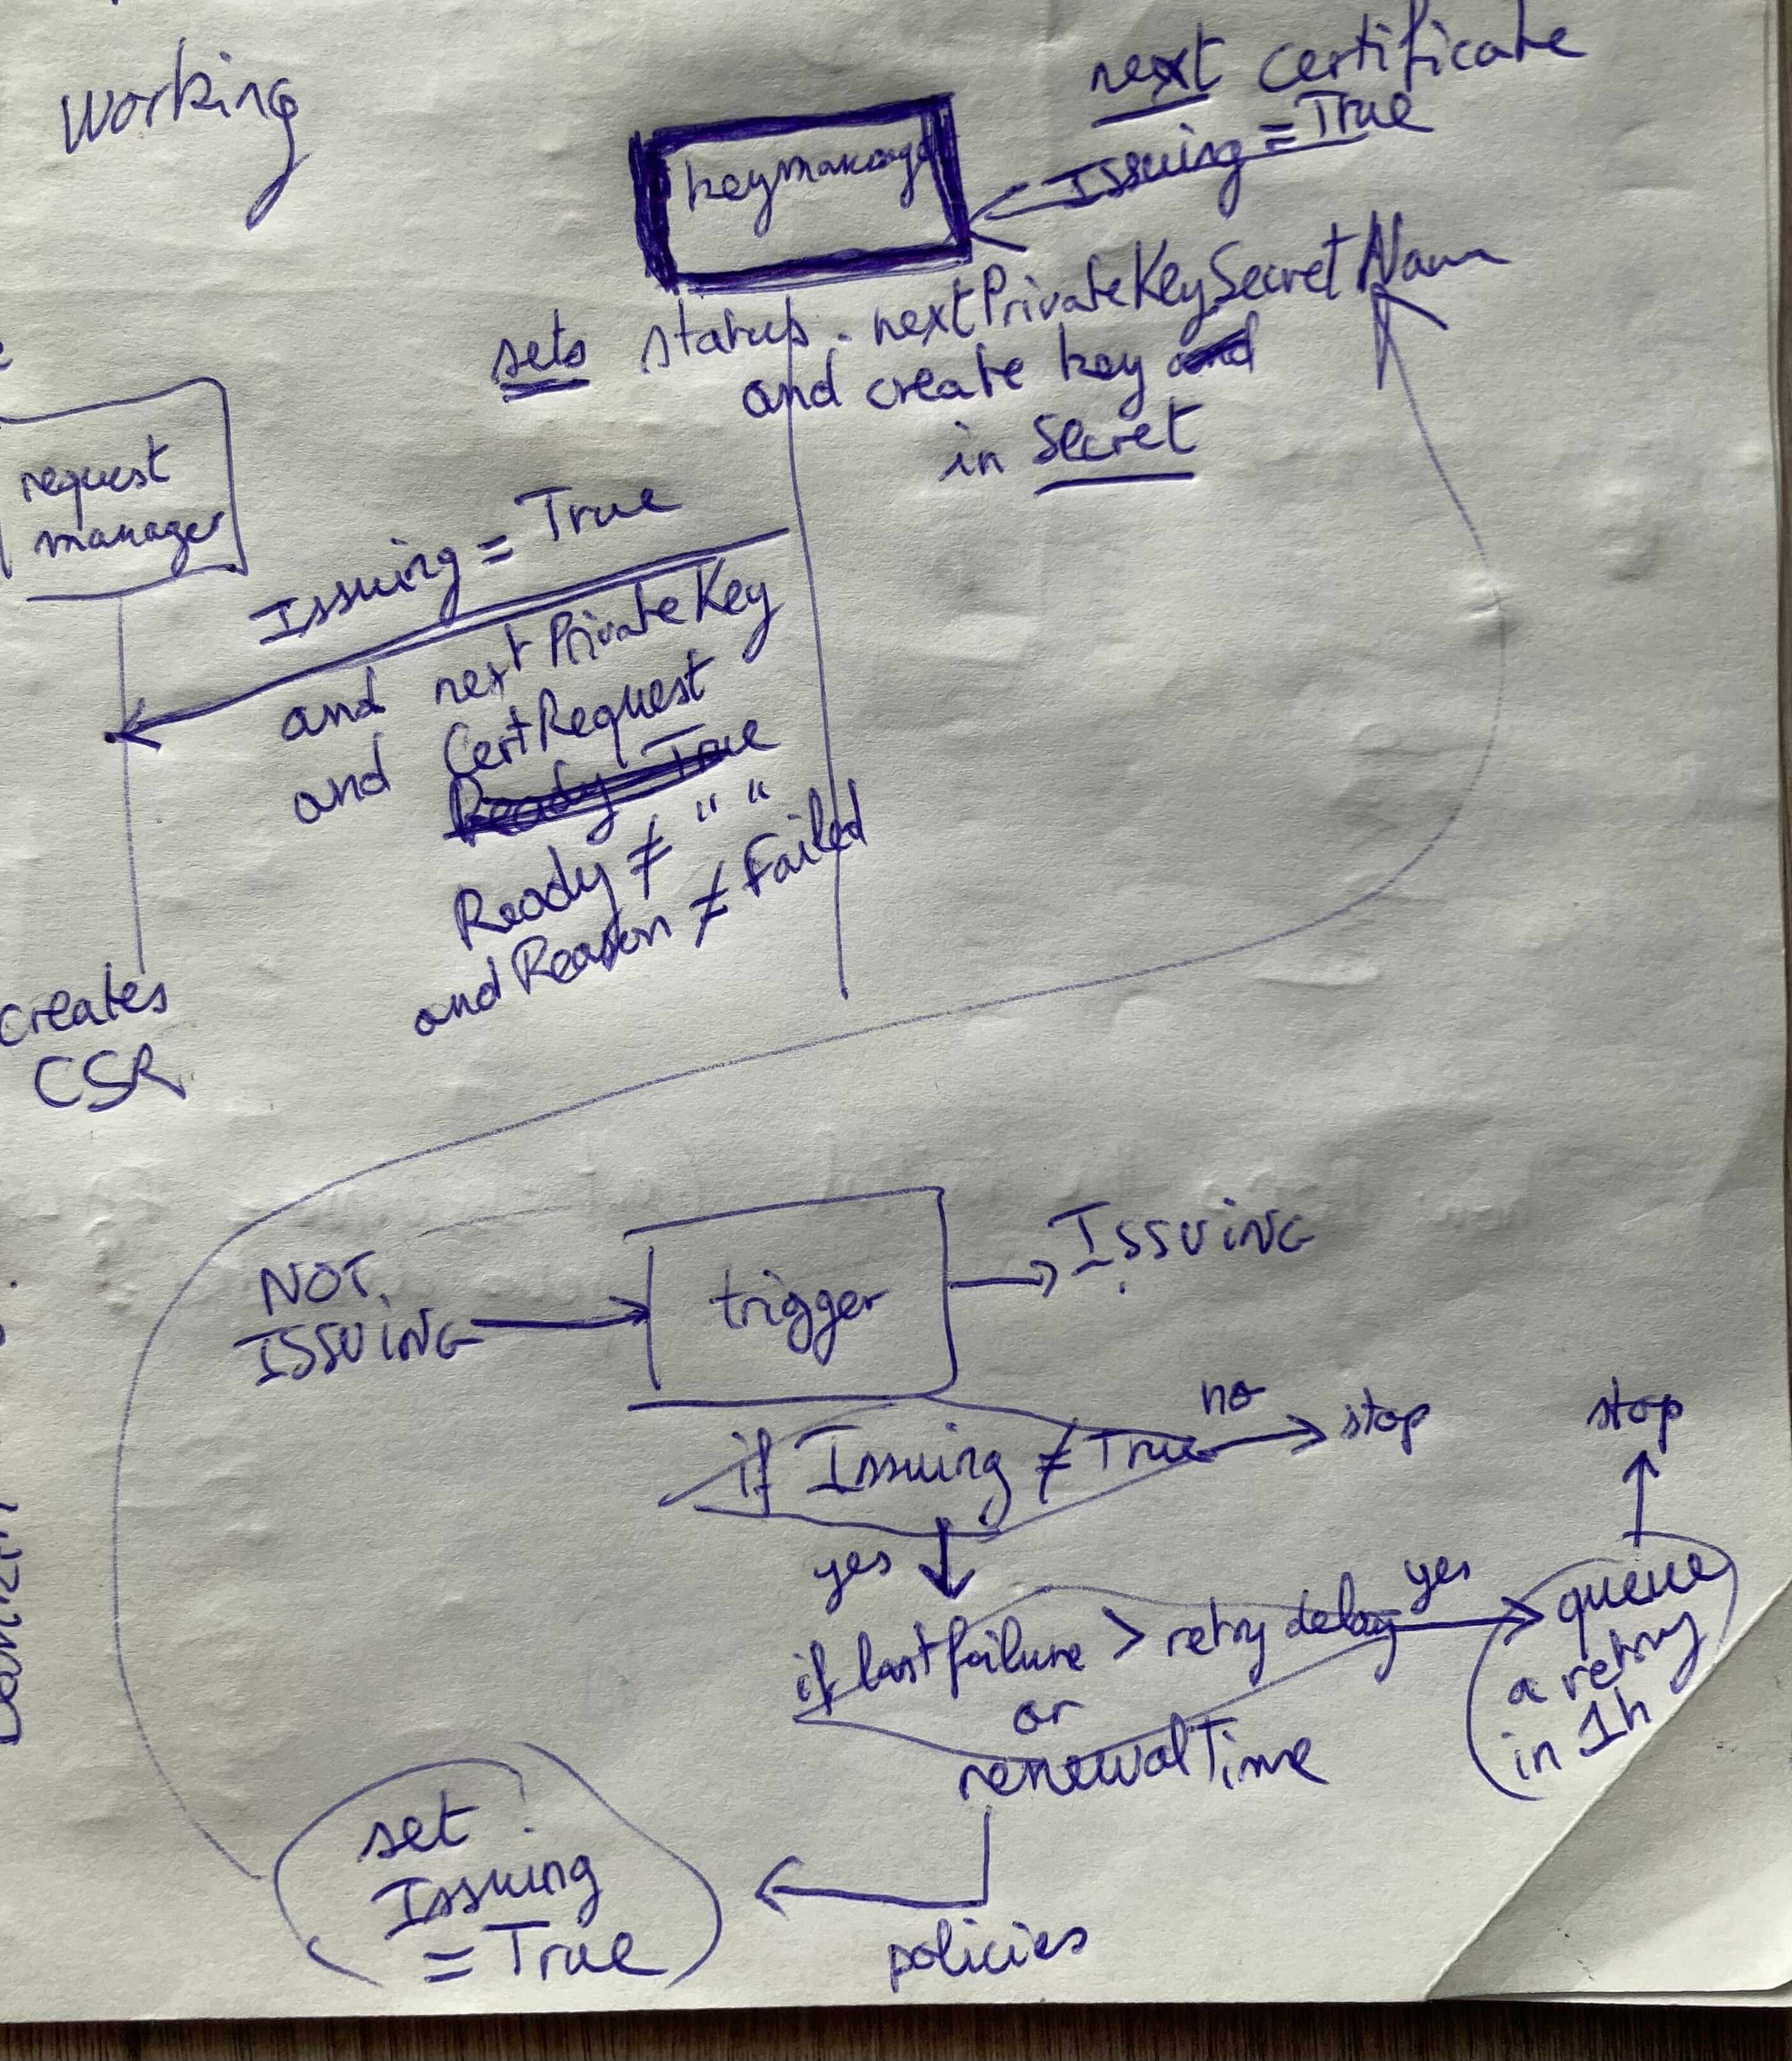 Working
next certificate
Issuing = True
keymanager
sets status.nextPrivateKeySecretNam
and create key and
in Secret
request
manager
Issuing = True
and nextPrivateKey
and CertRequest
Ready True
Ready ≠ " "
and Reason ≠ Failed
creates
CSR
NOT
ISSUING
trigger
ISSUING
if Issuing ≠ True
no
stop
stop
yes
if last failure > retry delay
yes
or
renewalTime
queue
a retry
in 1h
set
Issuing
= True
policies